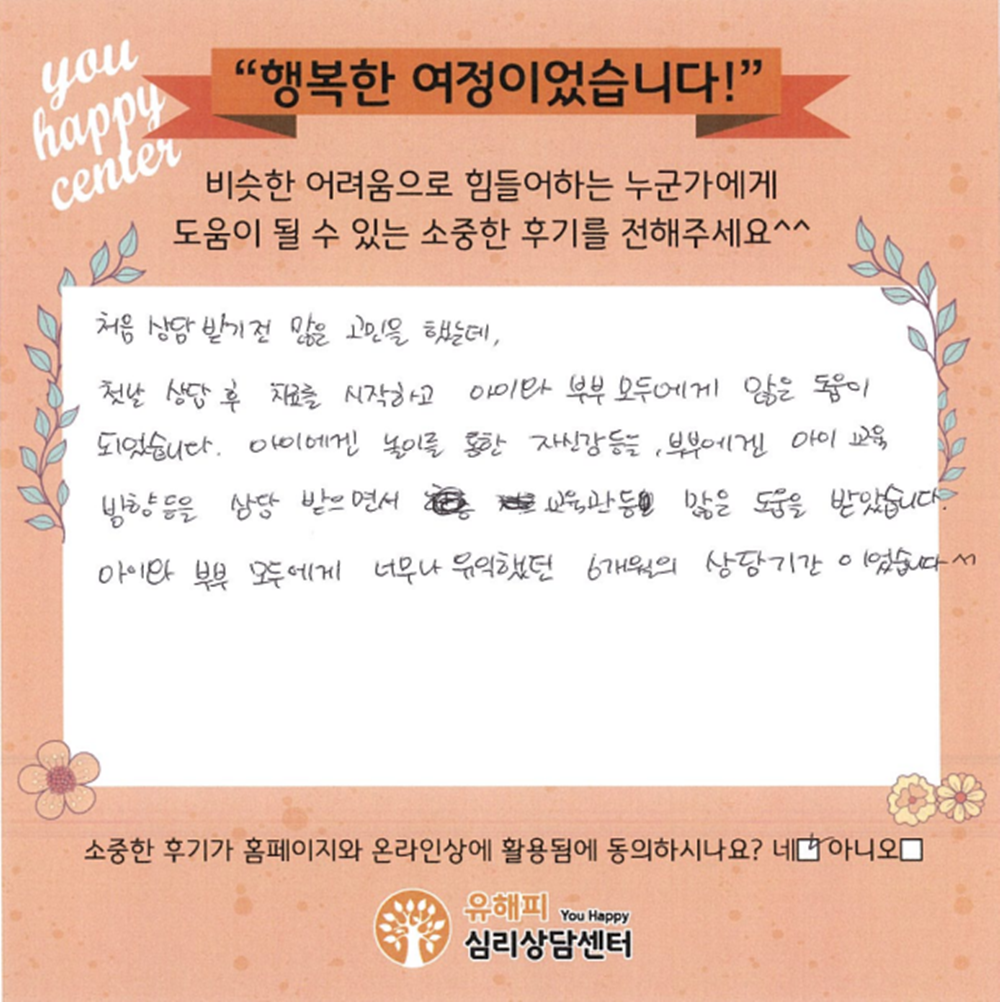 you
happy
center
“행복한 여정이었습니다!”
비슷한 어려움으로 힘들어하는 누군가에게
도움이 될 수 있는 소중한 후기를 전해주세요^^
처음 상담 받기전 많은 고민을 했는데,
첫날 상담 후 치료를 시작하고 아이와 부부 모두에게 많은 도움이
되었습니다. 아이에겐 놀이를 통한 자신감등을, 부부에겐 아이 교육
방향등을 상담 받으면서 교육관등 많은 도움을 받았습니다.
아이와 부부 모두에게 너무나 유익했던 6개월의 상담기간 이었습니다^^
소중한 후기가 홈페이지와 온라인상에 활용됨에 동의하시나요? 네☑ 아니오☐
유해피 You Happy
심리상담센터